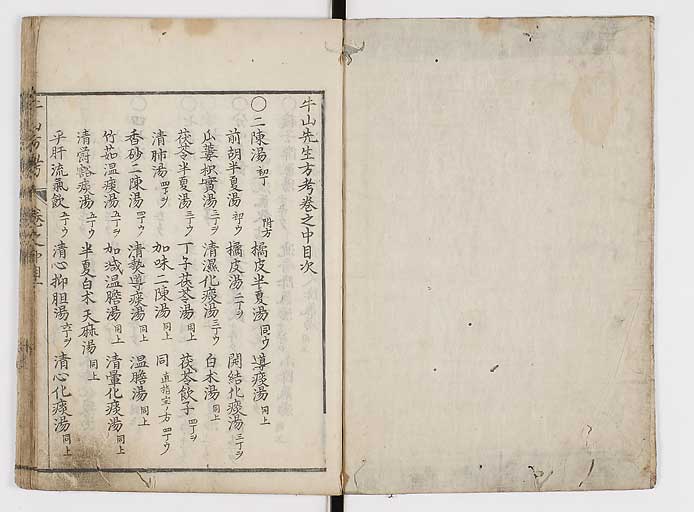 牛山先生方考巻之中目次
〇二陳湯 初丁 附方 橘皮半夏湯 同ウ 導痰湯 同上
前胡半夏湯 初ウ 橘皮湯 二丁ヲ 開結化痰湯 三丁ヲ
瓜蔞枳實湯 三丁ヲ 清濕化痰湯 三丁ウ 白朮湯 同上
茯苓半夏湯 三丁ウ 丁子茯苓湯 同上 茯苓飲子 四丁ヲ
清肺湯 四丁ヲ 加味二陳湯 同上 同 直指宝ノ方 四丁ウ
香砂二陳湯 四丁ウ 清熱導痰湯 同上 温膽湯 同上
竹茹温痰湯 五丁ヲ 加减温膽湯 同上 清暈化痰湯 同上
清欝豁痰湯 五丁ウ 半夏白朮天麻湯 同上
平肝流氣飲 五丁ウ 清心抑胆湯 六丁ヲ 清心化痰湯 同上